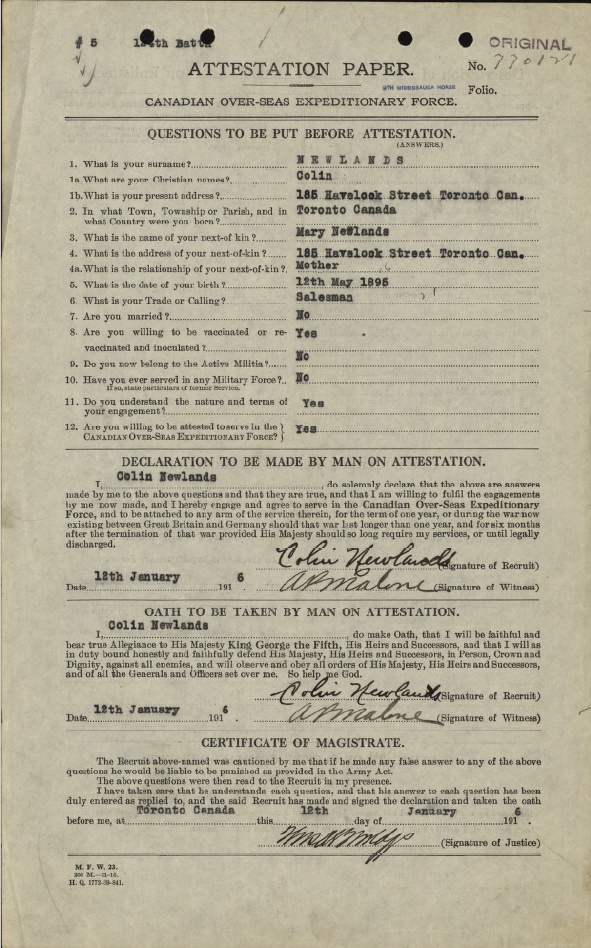 # 5 124th Battn
ORIGINAL
ATTESTATION PAPER.
No. 770121
9TH MISSISSAUGA HORSE
Folio.
CANADIAN OVER-SEAS EXPEDITIONARY FORCE.
QUESTIONS TO BE PUT BEFORE ATTESTATION.
(ANSWERS.)
1. What is your surname? NEWLANDS
1a What are your Christian names? Colin
1b. What is your present address? 185 Havelock Street Toronto Can.
2. In what Town, Township or Parish, and in Toronto Canada
what Country were you born?
3. What is the name of your next-of kin? Mary Newlands
4. What is the address of your next-of-kin? 185 Havelock Street Toronto Can.
4a. What is the relationship of your next-of-kin? Mother
5. What is the date of your birth? 12th May 1895
6. What is your Trade or Calling? Salesman
7. Are you married? No
8. Are you willing to be vaccinated or re- Yes
vaccinated and inoculated?
9. Do you now belong to the Active Militia? No
10. Have you ever served in any Military Force? No
If so, state particulars of former Service.
11. Do you understand the nature and terms of Yes
your engagement?
12. Are you willing to be attested to serve in the } Yes
CANADIAN OVER-SEAS EXPEDITIONARY FORCE? }
DECLARATION TO BE MADE BY MAN ON ATTESTATION.
I, Colin Newlands, do solemnly declare that the above are answers
made by me to the above questions and that they are true, and that I am willing to fulfil the engagements
by me now made, and I hereby engage and agree to serve in the Canadian Over-Seas Expeditionary
Force, and to be attached to any arm of the service therein, for the term of one year, or during the war now
existing between Great Britain and Germany should that war last longer than one year, and for six months
after the termination of that war provided His Majesty should so long require my services, or until legally
discharged.
Colin Newlands (Signature of Recruit)
Date 12th January 1916. A P Malone (Signature of Witness)
OATH TO BE TAKEN BY MAN ON ATTESTATION.
I, Colin Newlands, do make Oath, that I will be faithful and
bear true Allegiance to His Majesty King George the Fifth, His Heirs and Successors, and that I will as
in duty bound honestly and faithfully defend His Majesty, His Heirs and Successors, in Person, Crown and
Dignity, against all enemies, and will observe and obey all orders of His Majesty, His Heirs and Successors,
and of all the Generals and Officers set over me. So help me God.
Colin Newlands (Signature of Recruit)
Date 12th January 1916. A P Malone (Signature of Witness)
CERTIFICATE OF MAGISTRATE.
The Recruit above-named was cautioned by me that if he made any false answer to any of the above
questions he would be liable to be punished as provided in the Army Act.
The above questions were then read to the Recruit in my presence.
I have taken care that he understands each question, and that his answer to each question has been
duly entered as replied to, and the said Recruit has made and signed the declaration and taken the oath
before me, at Toronto Canada this 12th day of January 1916.
(Signature of Justice)
M. F. W. 23.
200 M.—11-15.
H. Q. 1772-39-841.